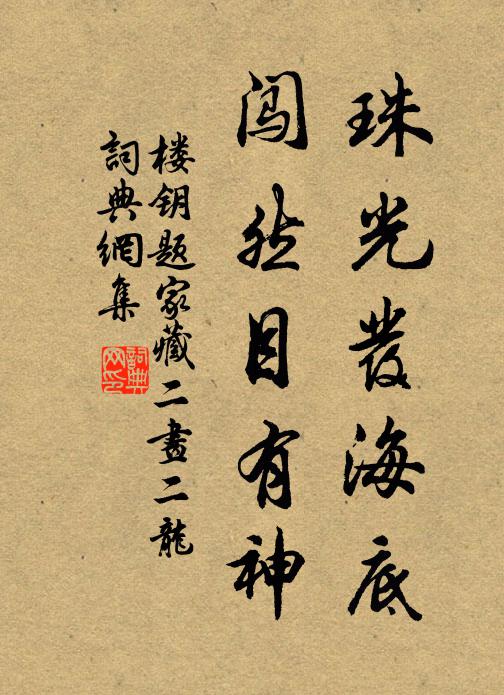 珠光發海底
闯然目有神
楼钥题家藏二畫二龍
詞典網集
詞典网印